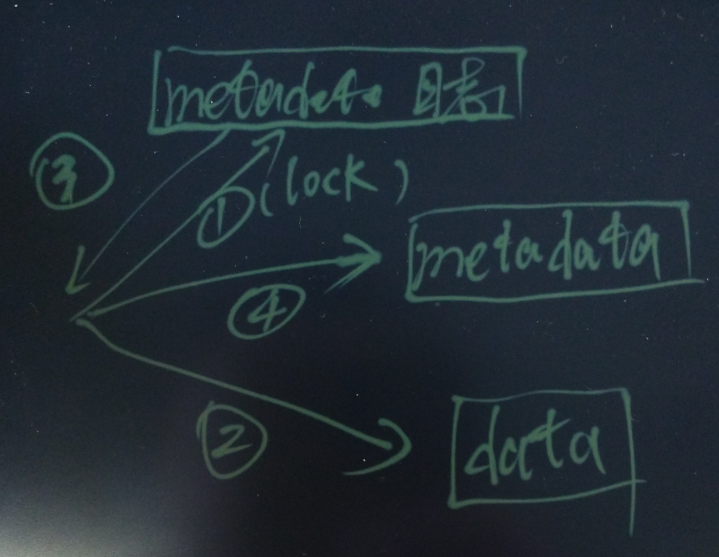 metadata 日志
③
①(lock)
metadata
④
②
data